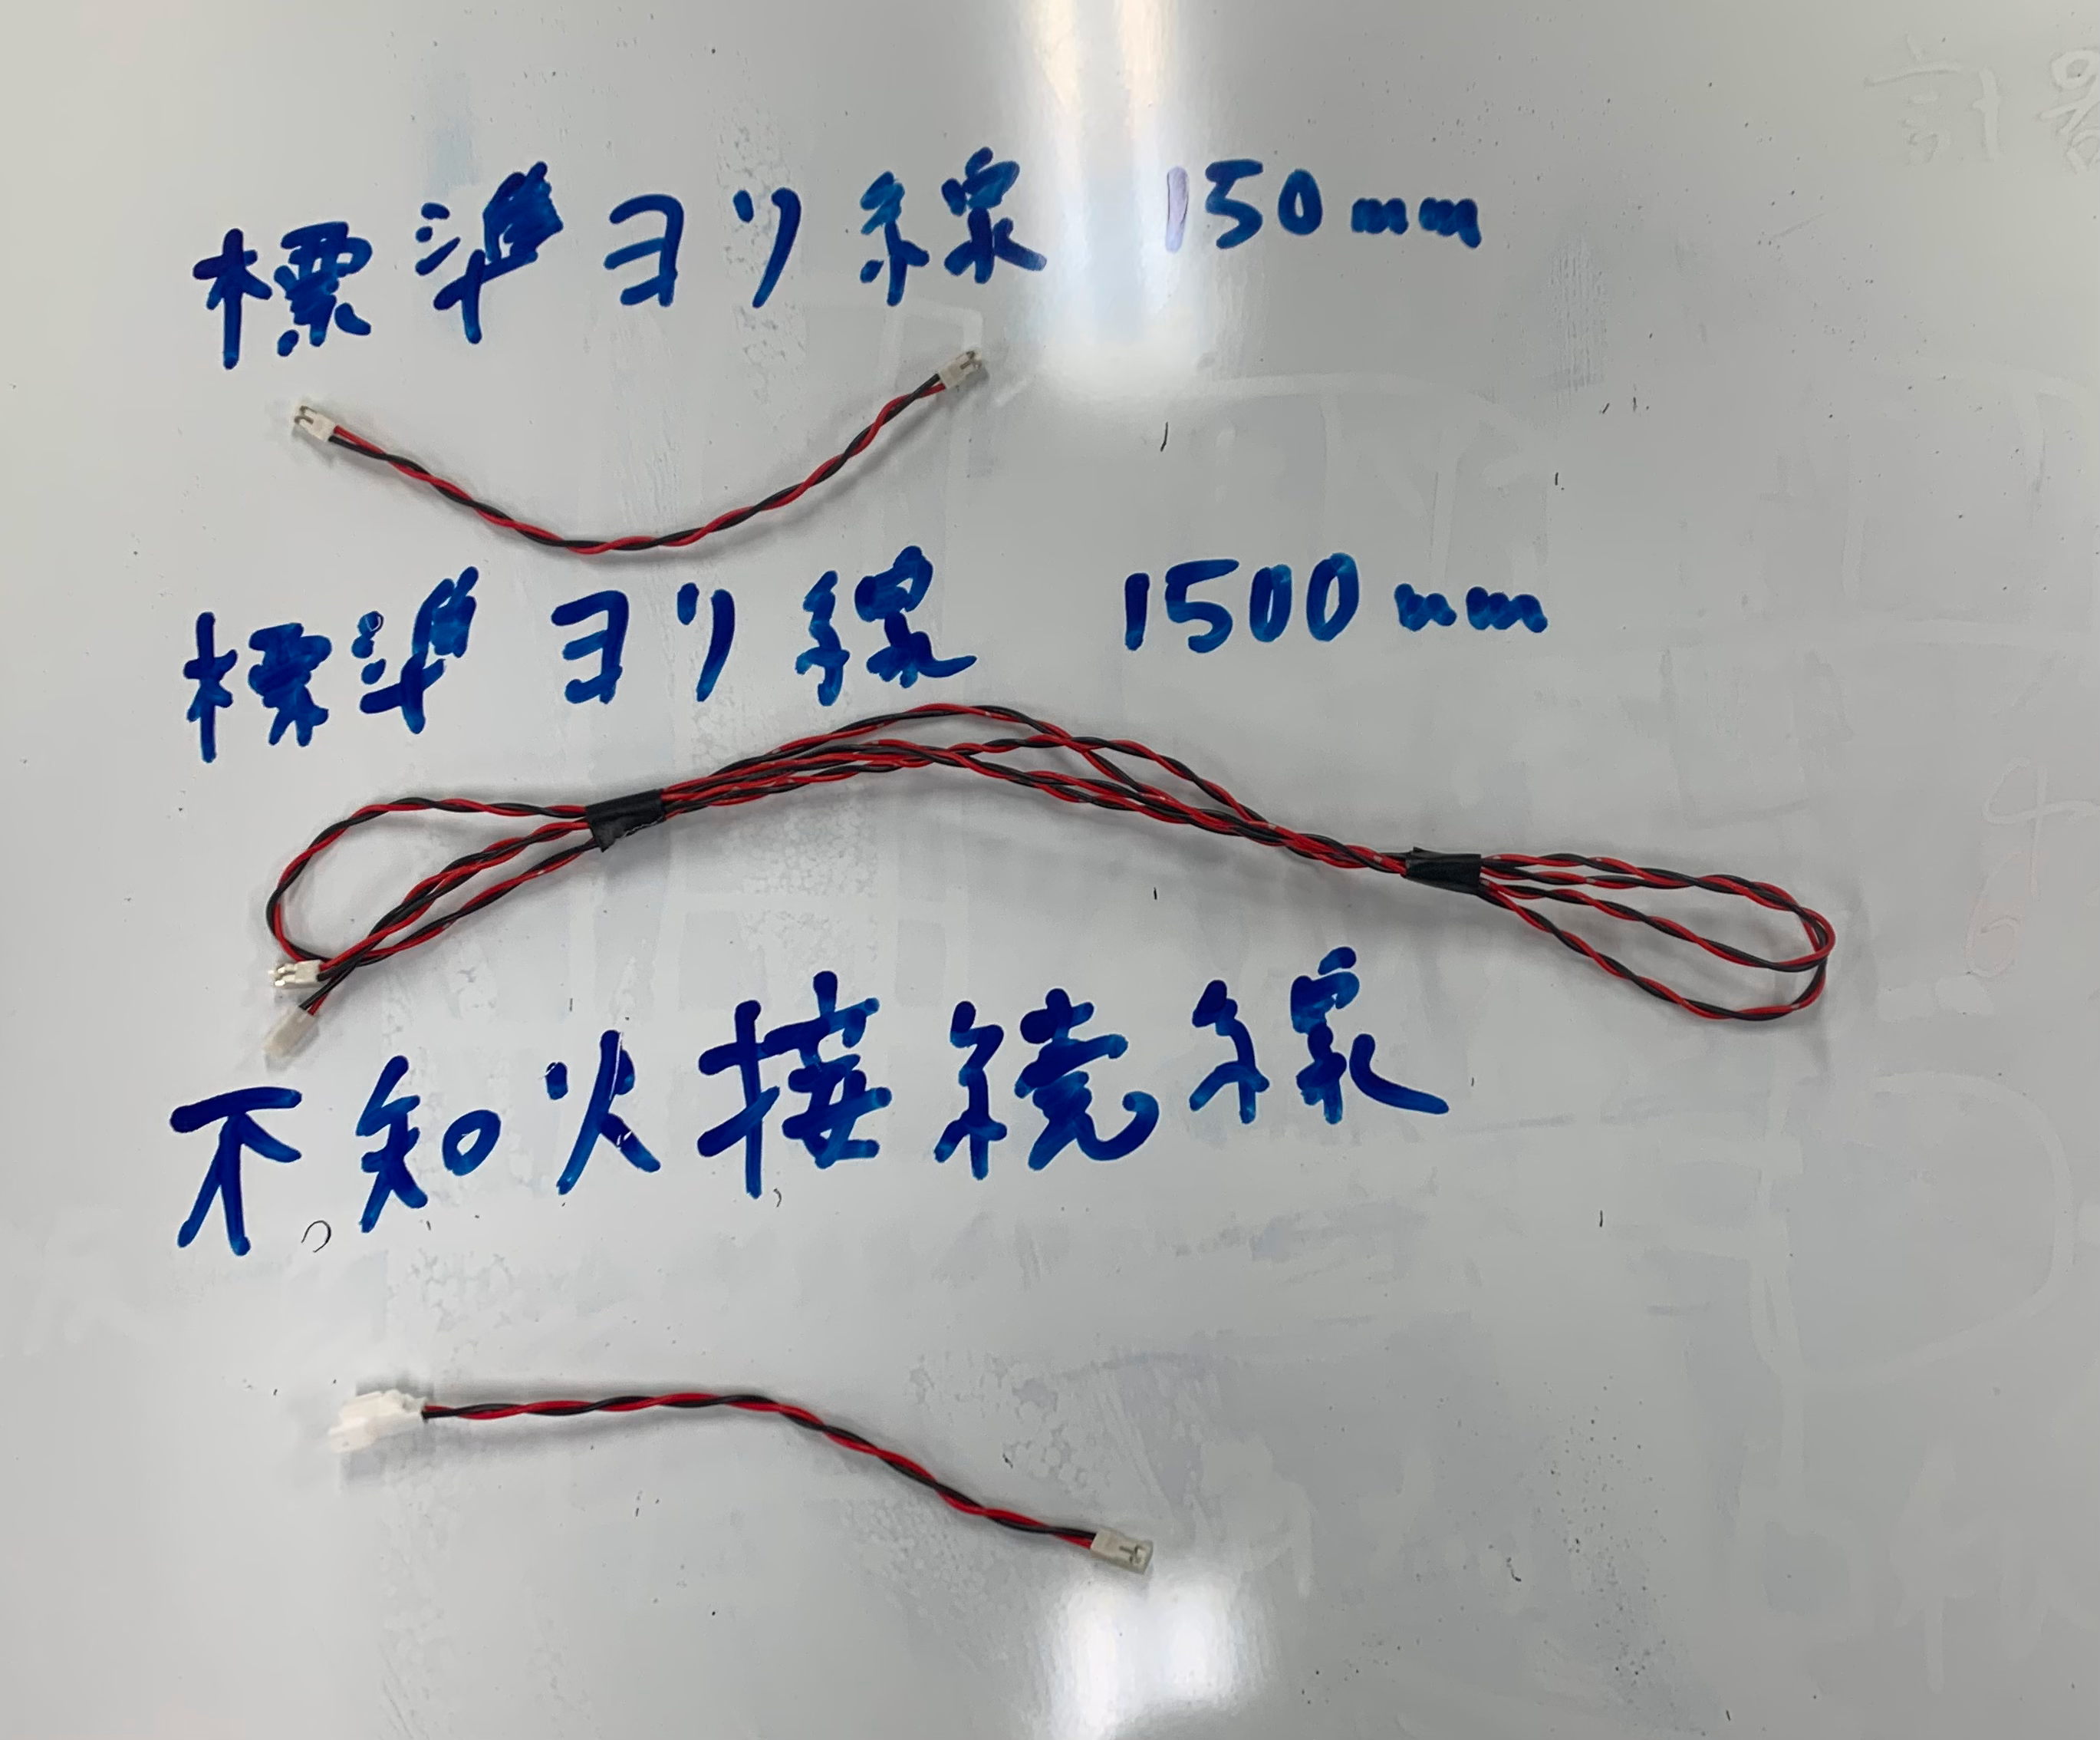 標準ヨリ線 150mm
標準ヨリ線 1500mm
不知火接続線